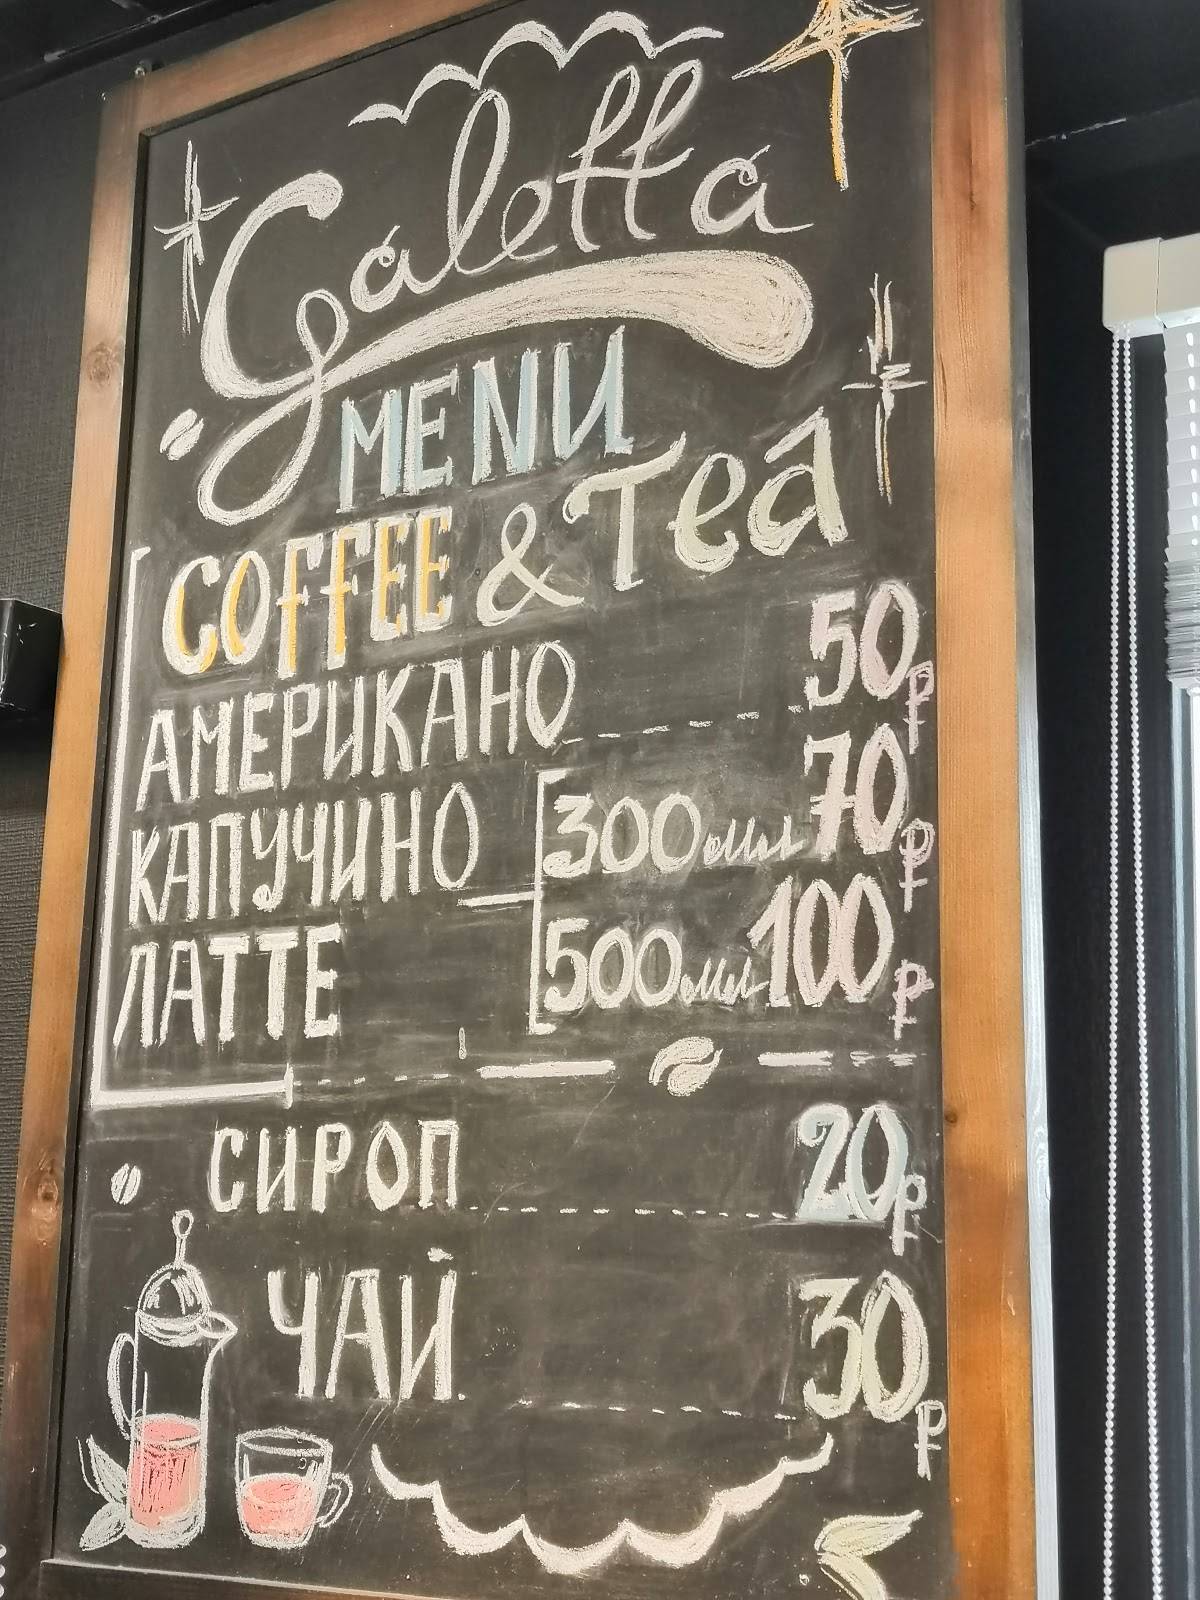 Galetta
MENU
COFFEE & Tea
АМЕРИКАНО 50₽
КАПУЧИНО 300мл 70₽
ЛАТТЕ 500мл 100₽
СИРОП 20₽
ЧАЙ 30₽